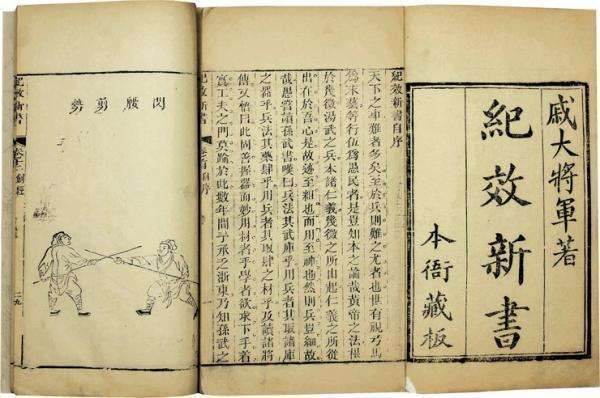 戚大將軍著
紀效新書
本衙藏板
紀效新書自序
天下之事難者多矣至於兵則難之尤者也世有視弓馬
為末藝等行伍為愚民者是豈知本之論哉黃帝之法根
於幾微湯武之兵本諸仁義幾微之所由起仁義之所從
出在於吾心是故迹至粗也而用至神也然則兵豈細故
哉愚嘗讀孫武書嘆曰兵法其武庫乎用兵者其取諸庫
之器乎兵法其藥肆乎用兵者其取肆之材乎及讀諸將
傳又悟曰此固善握器而妙用材者乎學者欲求下手着
實工夫之門莫踰於此數年間予承乏浙東乃知孫武之
紀效新書
卷首 自序
一
閃腰剪勢
紀效新書
卷十二 劍經
二九